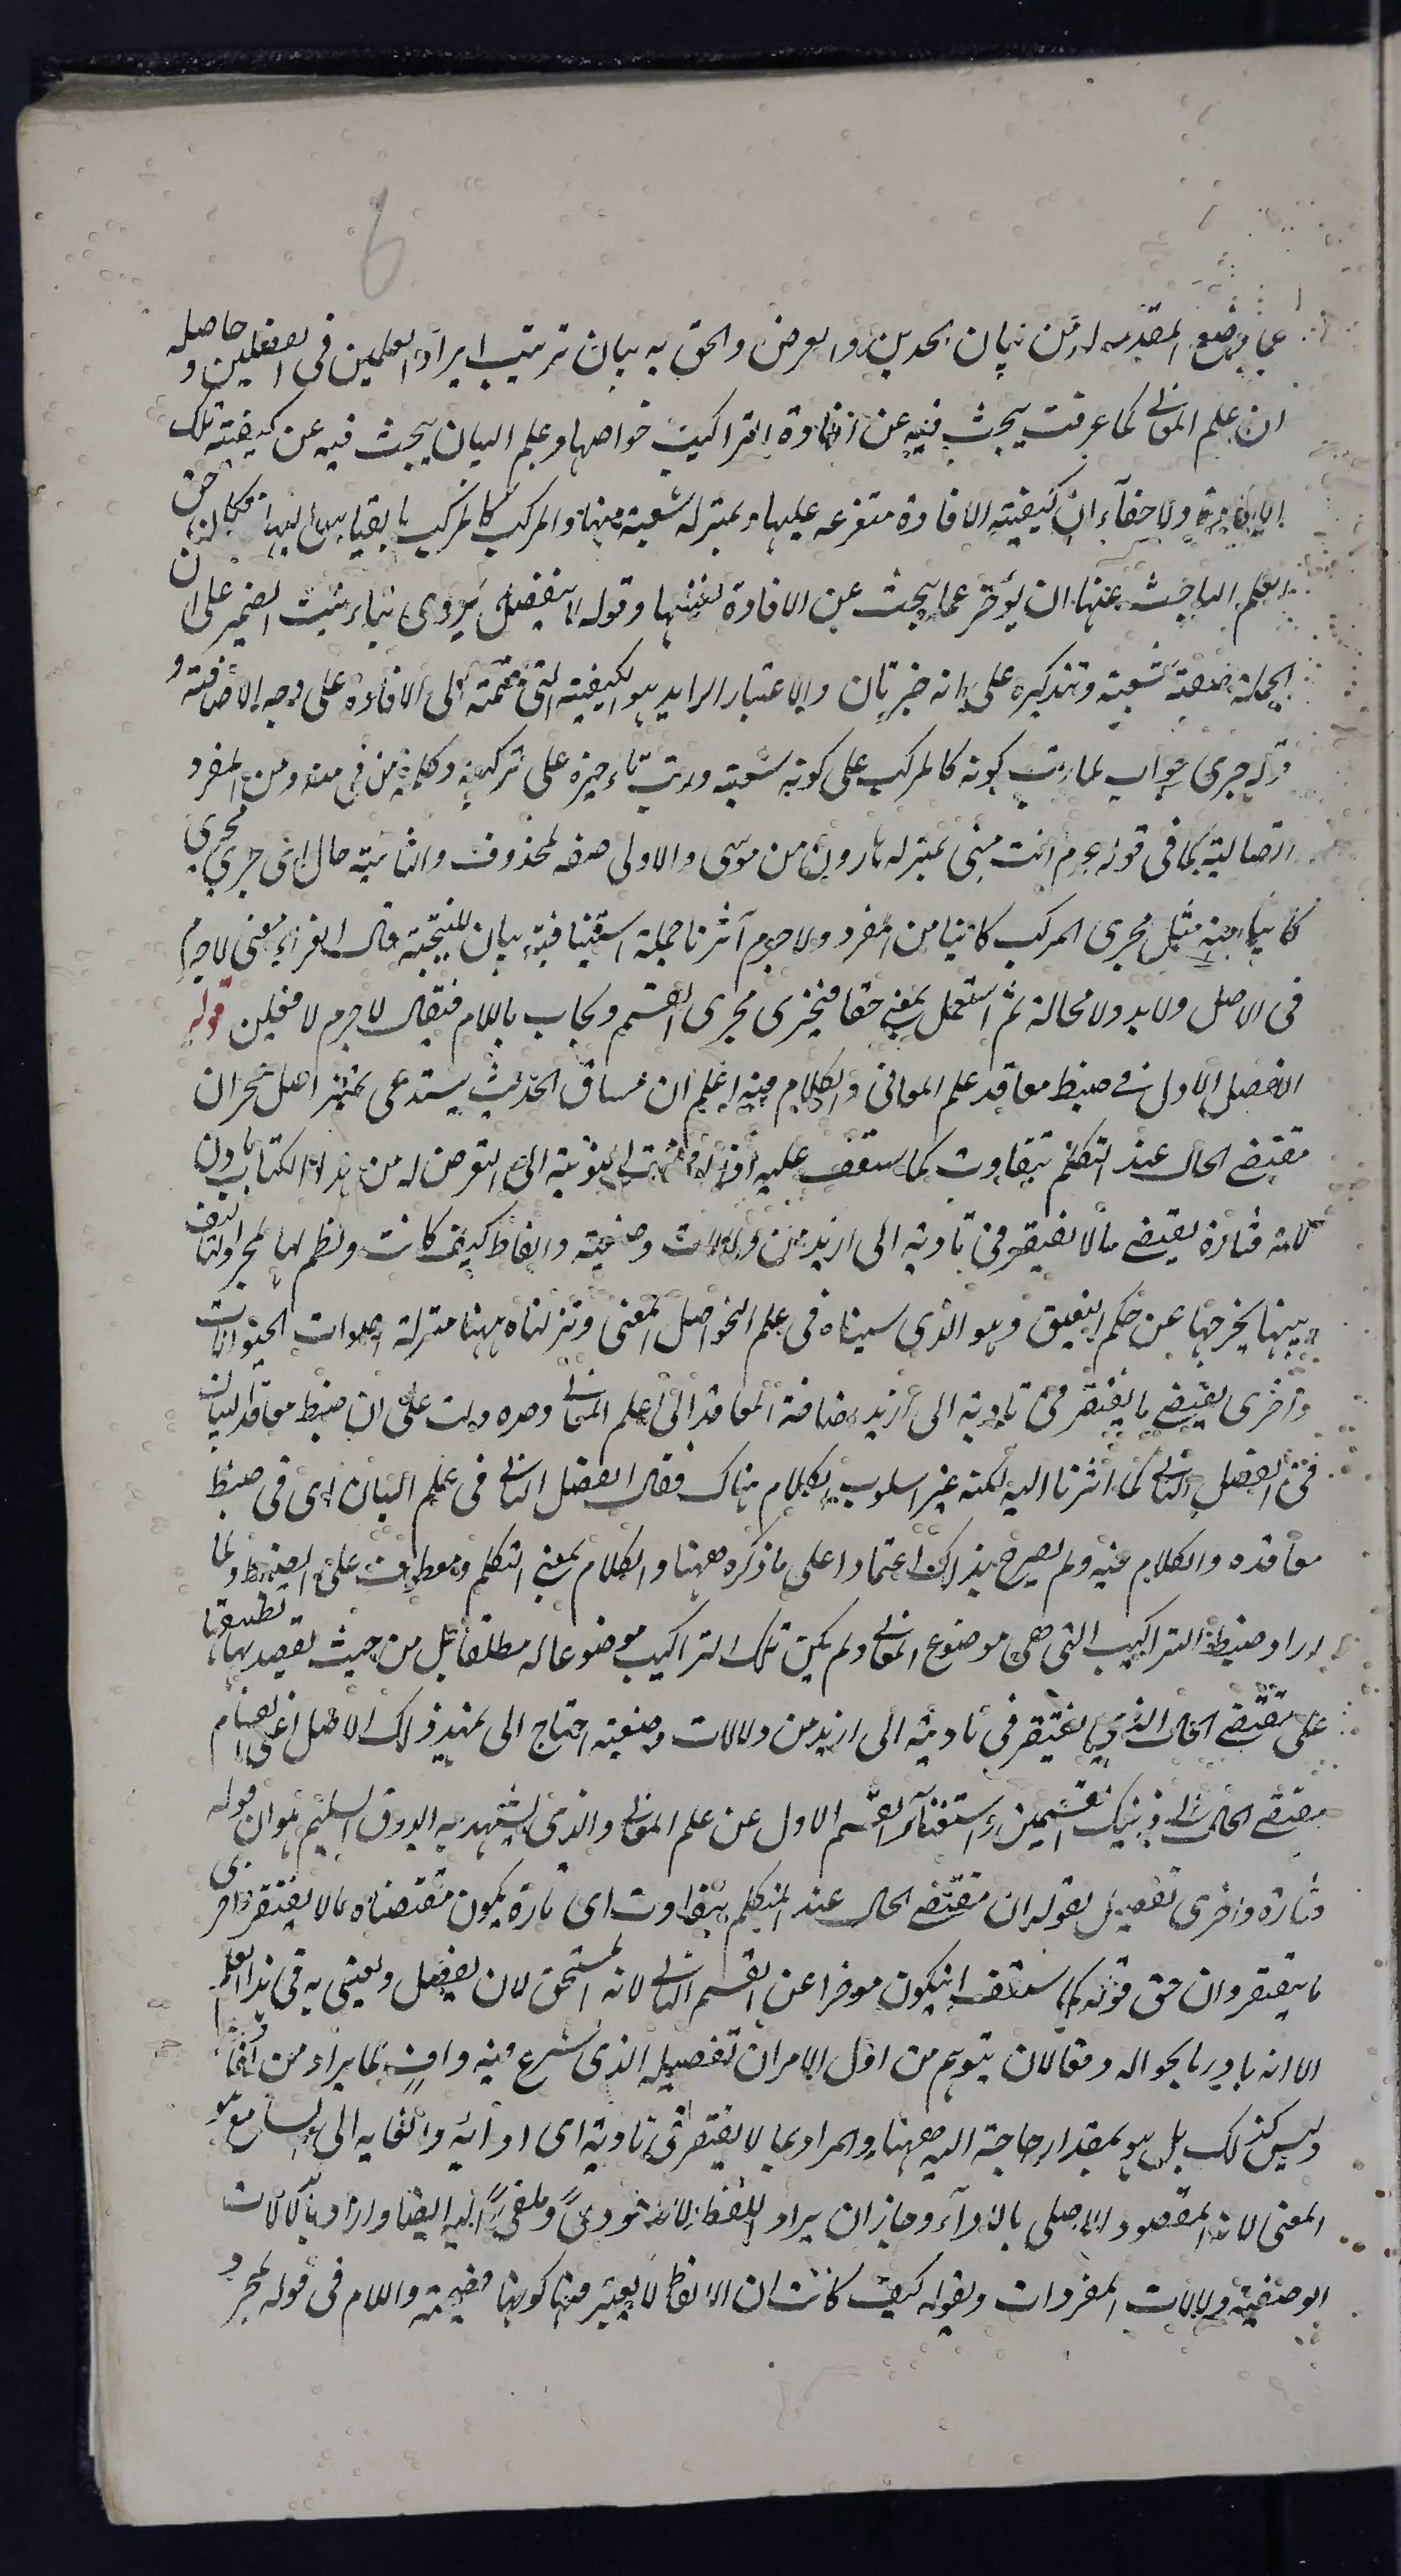 6
عما وضع المقدمه له من بيان الحدين والغرض والحق به بيان ترتيب ايراد العلمين فى الفصلين و حاصله
ان علم المعانى كما عرفت يبحث فيه عن افادة التراكيب خواصها وعلم البيان يبحث فيه عن كيفية تلك
الافادة ولا خفاء ان كيفية الافادة متفرعه عليها وبمنزله شعبة منها والمركب كالمركب بالقياس اليها فكان حق
العلم الباحث عنها ان يؤخر عما يبحث عن الافادة نفسها وقوله لا ينفصل يروى بتاء تأنيث الضمير على ان
الجملة صفة شعبة وتذكيره على انه خبر ثان والاعتبار الزايد هو الكيفية المنضمة الى الافادة على وجه الاضافة و
قوله جرى جواب لما رتب كونه كالمركب على كونه شعبة ورتب تأخيره على تركبه وكلمة من فى منه ومن المفرد
اتصالية كما فى قوله عم انت منى بمنزله هارون من موسى والاولى صفه لمحذوف والثانية حال اى جرى مجرى
كائنا منه مثل مجرى المركب كائنا من المفرد ولا جرم آثرنا جملة استينافية بيان للنتيجة قال الفراء معنى لا جرم
فى الاصل ولا بد ولا محالة ثم استعمل بمعنى حقا فيجرى مجرى القسم ويجاب باللام فيقال لا جرم لافعلن قوله
الفصل الاول فى ضبط معاقد علم المعانى والكلام فيه اعلم ان مساق الحديث يستدعى تمهيد اصل نحو ان
مقتضى الحال عند التكلم يتفاوت كما ستقف عليه اذا افضت النوبة الى التعرض له من هذا الكتاب باذن
الله فتارة يقتضى ما لا يفتقر فى تأديته الى ازيد من دلالات وضعية والفاظ كيف كانت ونظم لها لمجرد التأليف
بينها يخرجها عن حكم النعيق وهو الذى سميناه فى علم النحو اصل المعنى ونزلناه ههنا منزلة اصوات الحيوانات
واخرى يقتضى ما يفتقر فى تأديته الى ازيد اضافة المعاقد الى علم المعانى وحده دلت على ان ضبط معاقد البيان
فى الفصل الثانى كما اشرنا اليه لكنه غير اسلوب الكلام هناك فقال الفصل الثانى فى علم البيان اى فى ضبط
معاقده والكلام فيه ولم يصرح بذلك اعتمادا على ما ذكره ههنا والكلام بمعنى التكلم ومعطوف على الضبط ولما
اراد ضبط التراكيب التى هى موضوع المعانى ولم يكن تلك التراكيب موضوعا له مطلقا بل من حيث يقصد بها تطبيقها
على مقتضى الحال الذى يفتقر فى تأديته الى ازيد من دلالات وضعية احتاج الى تمهيد ذلك الاصل اعنى انقسام
مقتضى الحال الى ذينك القسمين واستغناء القسم الاول عن علم المعانى والذى يشهد به الذوق السليم هو ان قوله
فتارة واخرى تفصيل لقوله ان مقتضى الحال عند المتكلم يتفاوت اى تارة يكون مقتضاه ما لا يفتقر واخرى
ما يفتقر وان حق قوله كما ستقف ان يكون مؤخرا عن القسم الثانى لانه المستحق لان يفصل ويعنى به فى هذا العلم
الا انه بادر بالحواله دفعا لان يتوهم من اول الامر ان تفصيله الذى شرع فيه واف بما يراد من آنفا
وليس كذلك بل هو بمقدار حاجة اليه ههنا والمراد بما لا يفتقر فى تأديته اى ادائه والقايه الى السامع هو
المعنى لانه المقصود الاصلى بالاداء وجاز ان يراد اللفظ لانه مؤدى وملقى اليه ايضا واراد بالدلالات
الوضعية دلالات المفردات وبقوله كيف كانت ان الالفاظ لا يعتبر فيها كونها فصيحة واللام فى قوله لمجرد